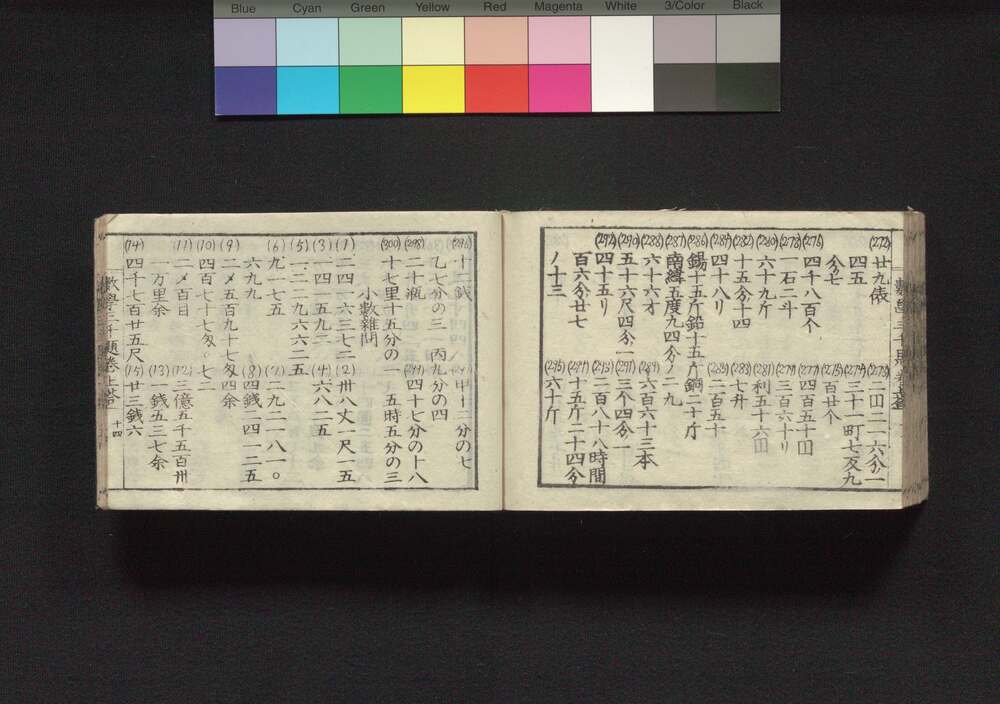 Blue Cyan Green Yellow Red Magenta White 3/Color Black
(272) 廿九俵 (273) 二円二一六分ノ一
四五 (274) 三十一町七反九
分ノ七
(275) 四千八百个 (276) 四百五十円
(278) 一石二斗 (279) 三百六十リ
(280) 六十九斤 (281) 利五十六円
(282) 十五分ノ十四 (283) 七升
(284) 四十八リ (285) 二百五十
(286) 錫十五斤鉛十五斤銅二十斤
(287) 南緯五度九四分ノ二九
(288) 六十六才 (289) 六百六十三本
(290) 五十六尺四分ノ一 (291) 三个四分ノ一
(292) 四十五リ (293) 二百八十八時間
(294) 十五斤二十四分
百六分ノ廿七
ノ十三 (295) 六十斤
(296) 十二銭
乙七分の三 丙九分の四
(298) 二十瓶 (299) 四十七分の十八
(300) 十七里十五分の一 五時五分の三
小數雜問
(1) 二四一六三七二 (2) 卅八丈一尺一五
(3) 一四一五九二 (4) 六八二五
(5) 一二二九六六二五
(6) 九一七五 (7) 二九二一一八一〇
六九九 (8) 四銭一四一二五
(9) 二メ五百九十七匁四余
(10) 四百七十七匁〇七二
(11) 二メ百目 (12) 三億五千五百卅
一万里余 (13) 一銭五三七余
(14) 四千七百廿五尺 (15) 廿三銭六
數學三千題卷上答 十四